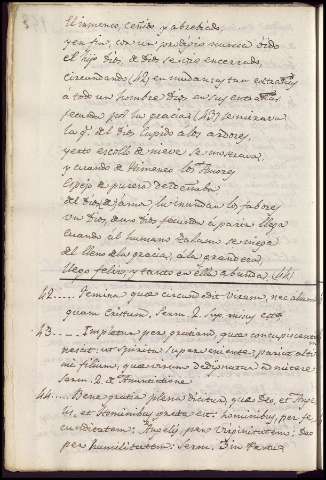 El inmenso, ceñido, y abrebiado,
y en fin, con un prodigio nunca oido
el hijo Dios, de Dios se vio encerrado,
circundando (42) en mudanzas tan
a todo un hombre Dios en sus entrañas
fecunda por la gracia (43) se mirava
la q.e del dios Cupido a los ardores,
yerto escollo de nieve se mostrava,
y cuando de Himeneo los Amores
espejo de pureza desdeñaba
del dios de ama la inundan los fabores
Un Dios, de un Dios fecunda à parir llega
cuando al humano talamo se niega
del lleno de la gracia, à la grandeza
llego feliz, y tanto en ella abunda (44)
42..... Femina quæ circumdedit Virum, nec alium
quam Cristum. Serm. 2. sup. misus est
43..... Impletur per gratiam, quæ concupiscentiam
nescit: ut Spiritu superveniente pariat alti-
mi filium, quæ virum dedignatur admitere
Serm. 2. de Anuntiatione
44.... Bene gratia plena dicitur, quæ Deo, et Ange-
lis, et hominibus grata est: hominibus, per fe-
cunditatem: Angelis, per Virginitatem: Deo
per humilitatem: Serm. 3 in